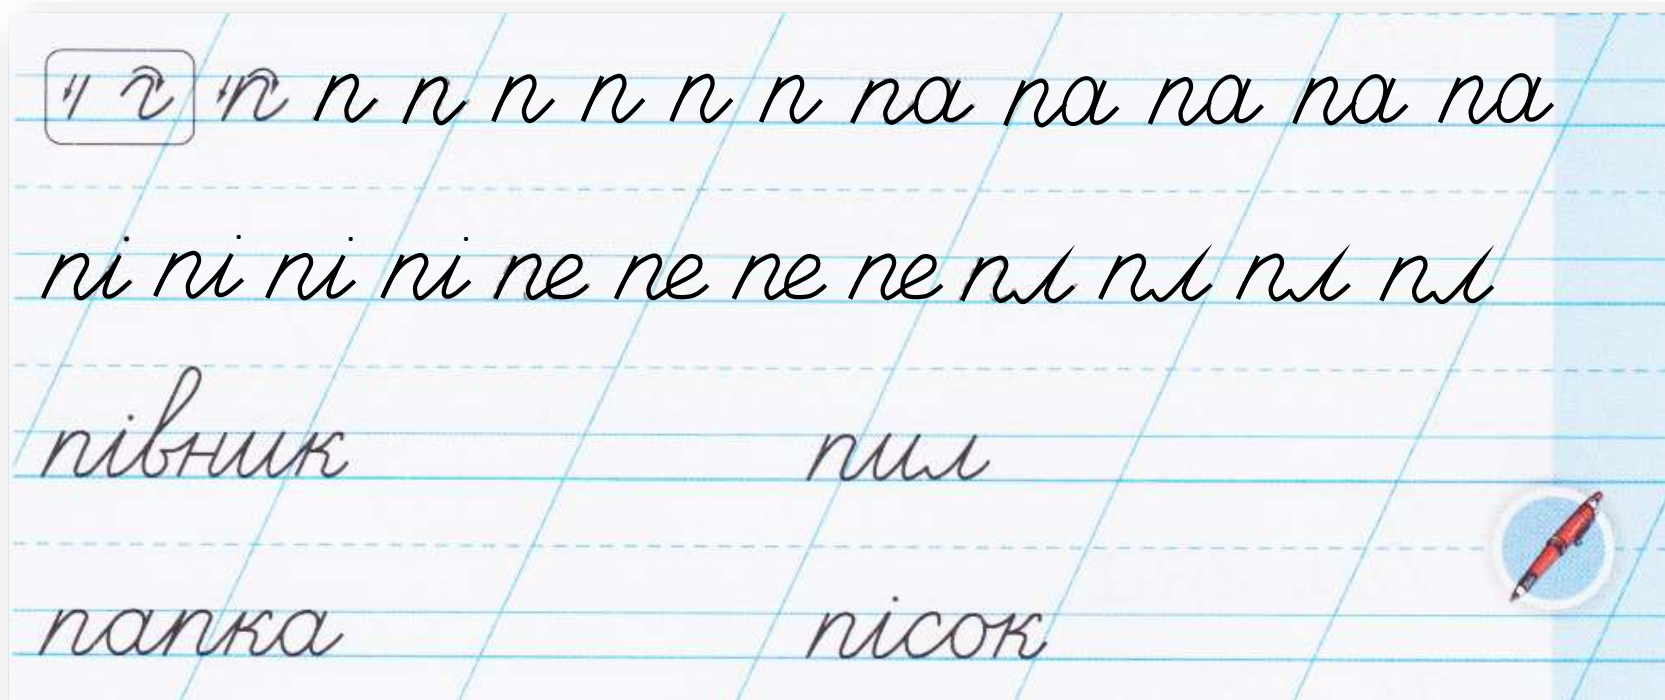 п п п п п п п па па па па па
пі пі пі пі пе пе пе пе пл пл пл пл
півник пил
папка пісок